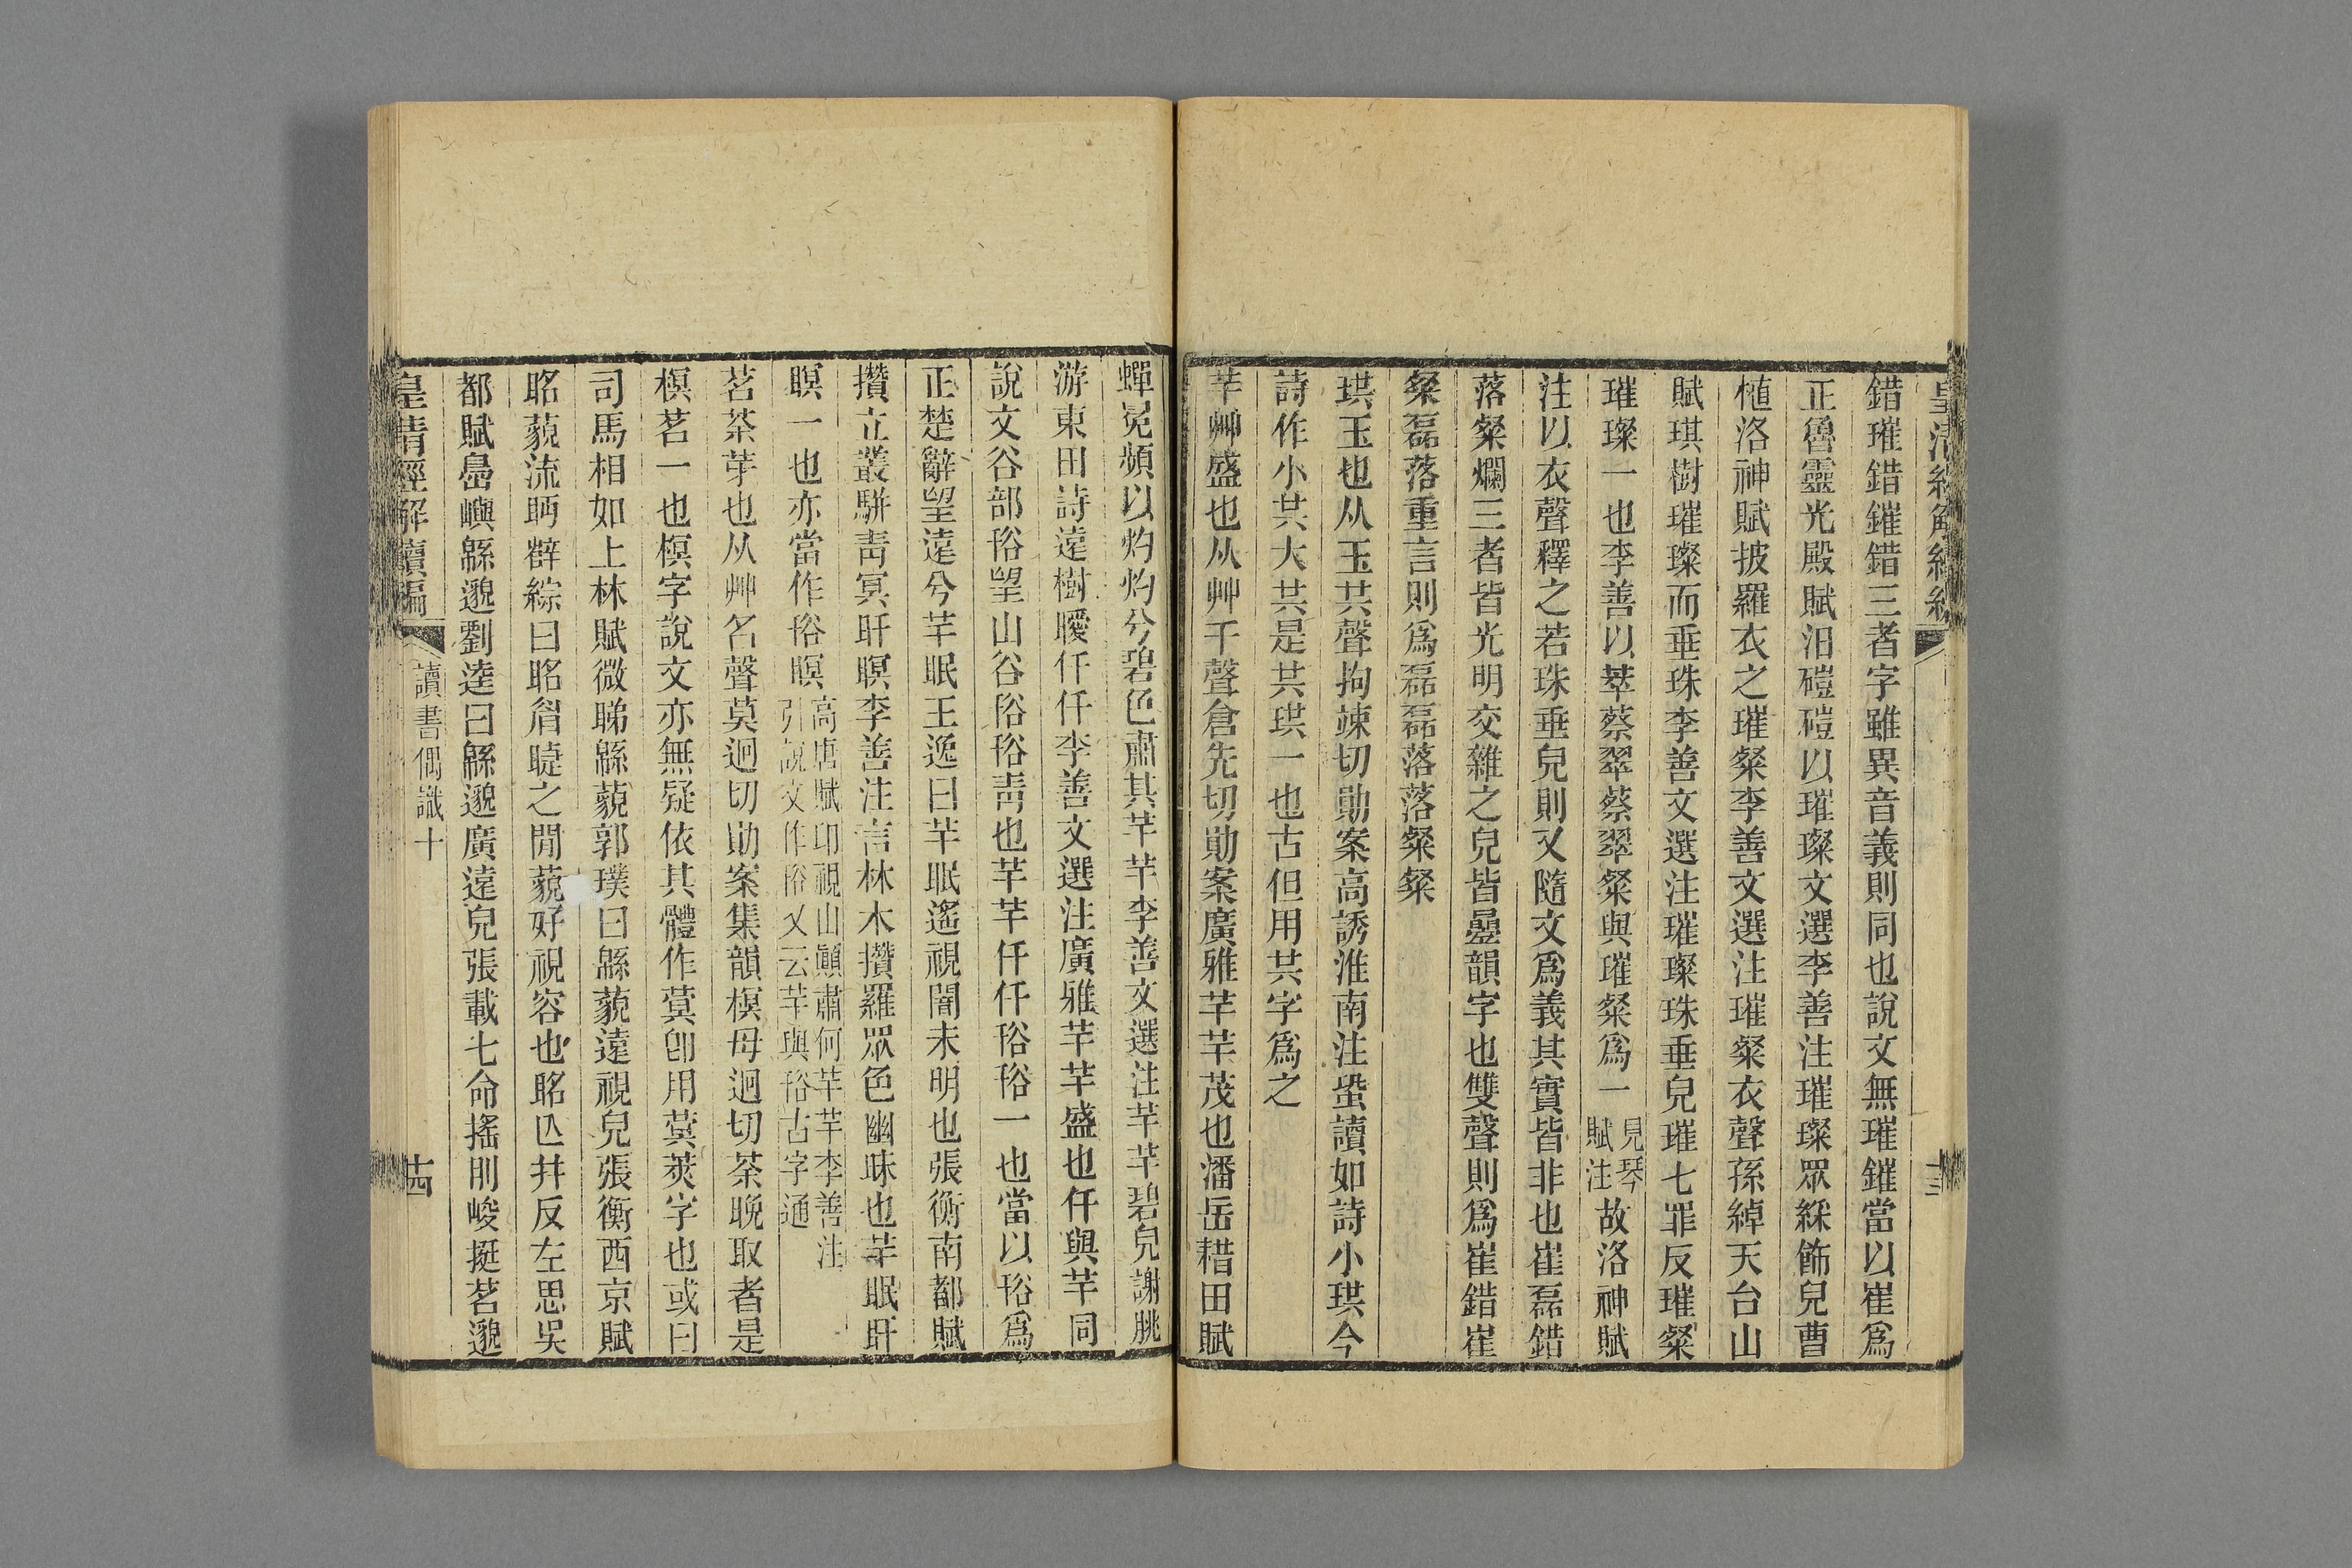 錯璀錯鏙錯三者字雖異音義則同也說文無璀鏙當以崔爲
正魯靈光殿賦汨磑磑以璀璨文選李善注璀璨眾綵飾皃曹
植洛神賦披羅衣之璀粲李善文選注璀粲衣聲孫綽天台山
賦琪樹璀璨而垂珠李善文選注璀璨珠垂皃璀七罪反璀粲
璀璨一也李善以萃蔡翠蔡翠粲與璀粲爲一見琴賦注故洛神賦
注以衣聲釋之若珠垂皃則又隨文爲義其實皆非也崔磊錯
落粲爛三者皆光明交雜之皃皆曡韻字也雙聲則爲崔錯崔
粲磊落重言則爲磊磊落落粲粲
珙玉也从玉共聲拘竦切勛案高誘淮南注蛩讀如詩小珙今
詩作小共大共是共珙一也古但用共字爲之
芊艸盛也从艸千聲倉先切勛案廣雅芊芊茂也潘岳耤田賦
蟬冕熲以灼灼兮碧色肅其芊芊李善文選注芊芊碧皃謝朓
游東田詩遠樹曖仟仟李善文選注廣雅芊芊盛也仟與芊同
說文谷部谸望山谷谸谸靑也芊芊仟仟谸谸一也當以谸爲
正楚辭望遠兮芊眠王逸曰芊眠遙視闇未明也張衡南都賦
攢立叢駢靑冥盰瞑李善注言林木攢羅眾色幽昧也芊眠盰
瞑一也亦當作谸瞑高唐賦卬視山顚肅何芊芊李善注引說文作谸又云芊與谸古字通
茗荼芽也从艸名聲莫迥切勛案集韻榠母迥切荼晚取者是
榠茗一也榠字說文亦無疑依其體作蓂卽用蓂莢字也或曰
司馬相如上林賦微睇緜藐郭璞曰緜藐遠視皃張衡西京賦
眳藐流眄薛綜曰眳眉睫之閒藐好視容也眳亾井反左思吳
都賦島嶼緜邈劉逵曰緜邈廣遠皃張載七命搖刖峻挺茗邈
皇清經解續編
讀書偶識十
十四